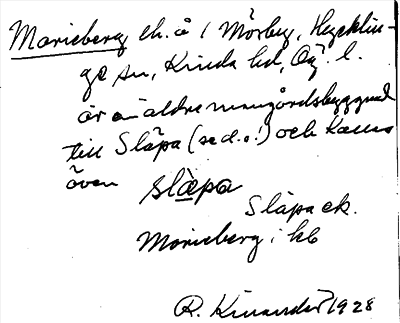 Marieberg ek. å 1 Mörby, Hycklin-
ge sn, Kinda hd, Ög. l.
är en äldre mangårdsbyggnad
till Släpa (se d.o.!) och kallas
även släpa
Släpa ek.
Marieberg i kb
R. Kinander 1928